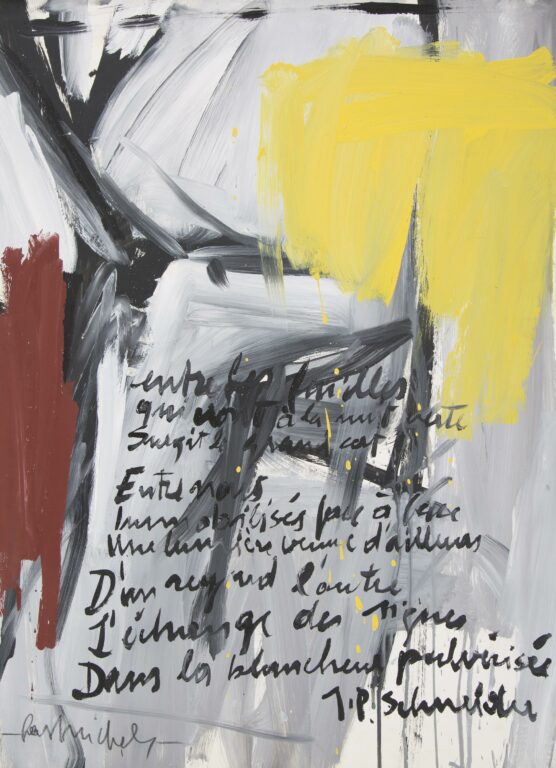 entre les
qui vont à la nuit verte
Surgit le grand cerf
Entre nous
Immobilisés face à face
Une lumière venue d'ailleurs
D'un regard l'autre
L'échange des signes
Dans la blancheur pulvérisée
J.P. Schneider